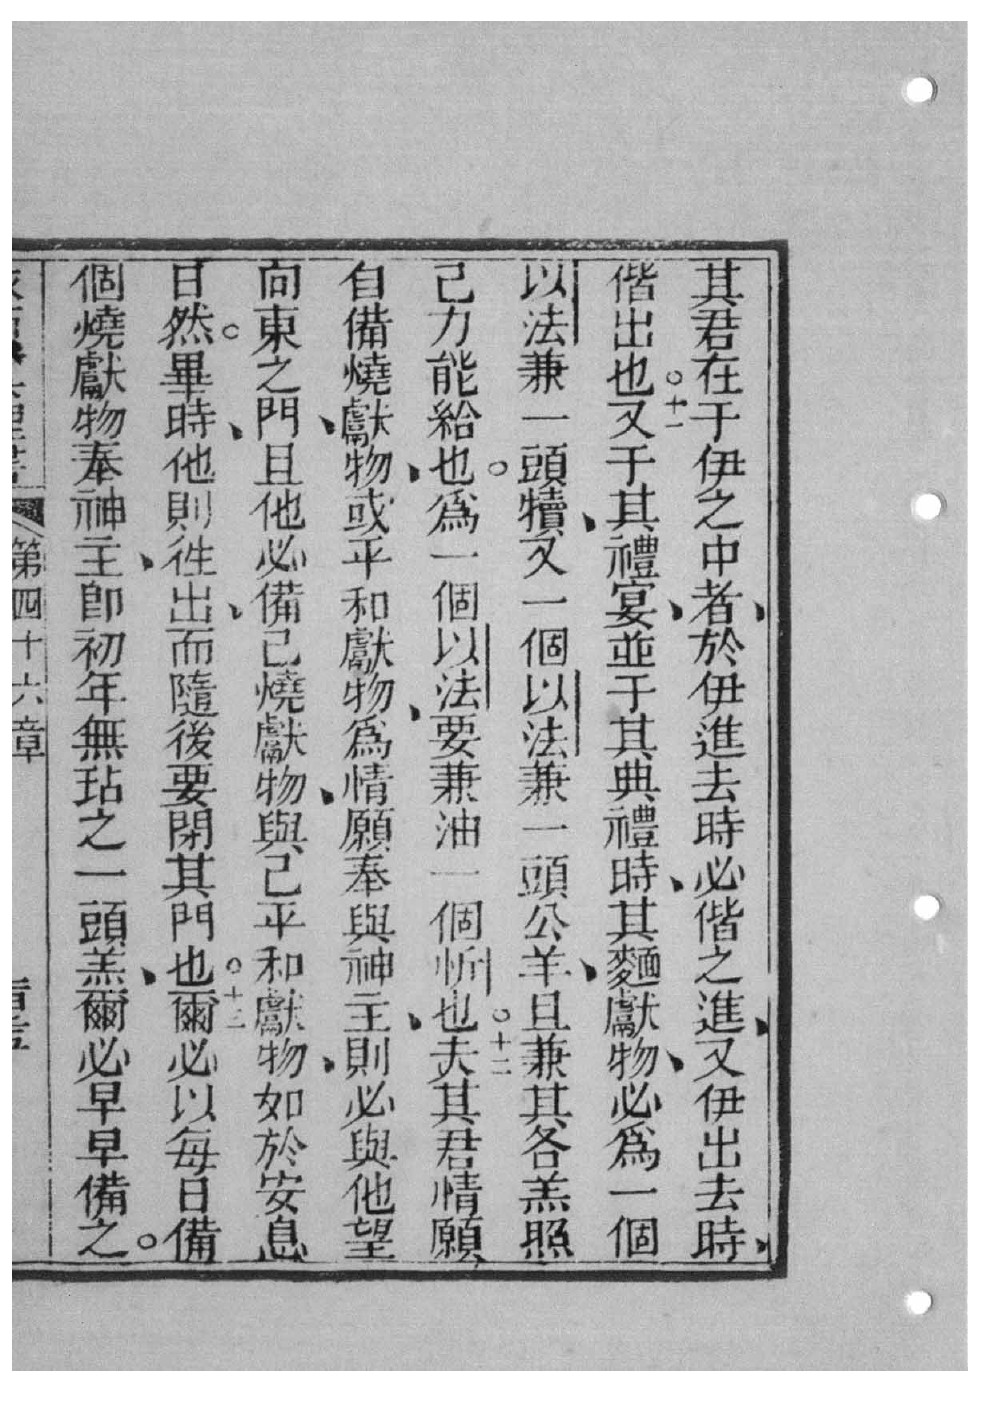 其君在于伊之中者、於伊進去時必偕之進、又伊出去時、
偕出也。十一又于其禮宴、並于其典禮時、其麵獻物、必為一個
以法兼一頭犢、又一個以法兼一頭公羊、且兼其各羔照
己力能給也。為一個以法要兼油一個忻也。十二夫其君情願
自備燒獻物、或平和獻物、為情願奉與神主、則必與他望
向東之門、且他必備己燒獻物、與己平和獻物、如於安息
日然。畢時、他則徃出、而隨後要閉其門也。十三爾必以每日備
個燒獻物奉神主、即初年無玷之一頭羔、爾必早早備之。
第四十六章